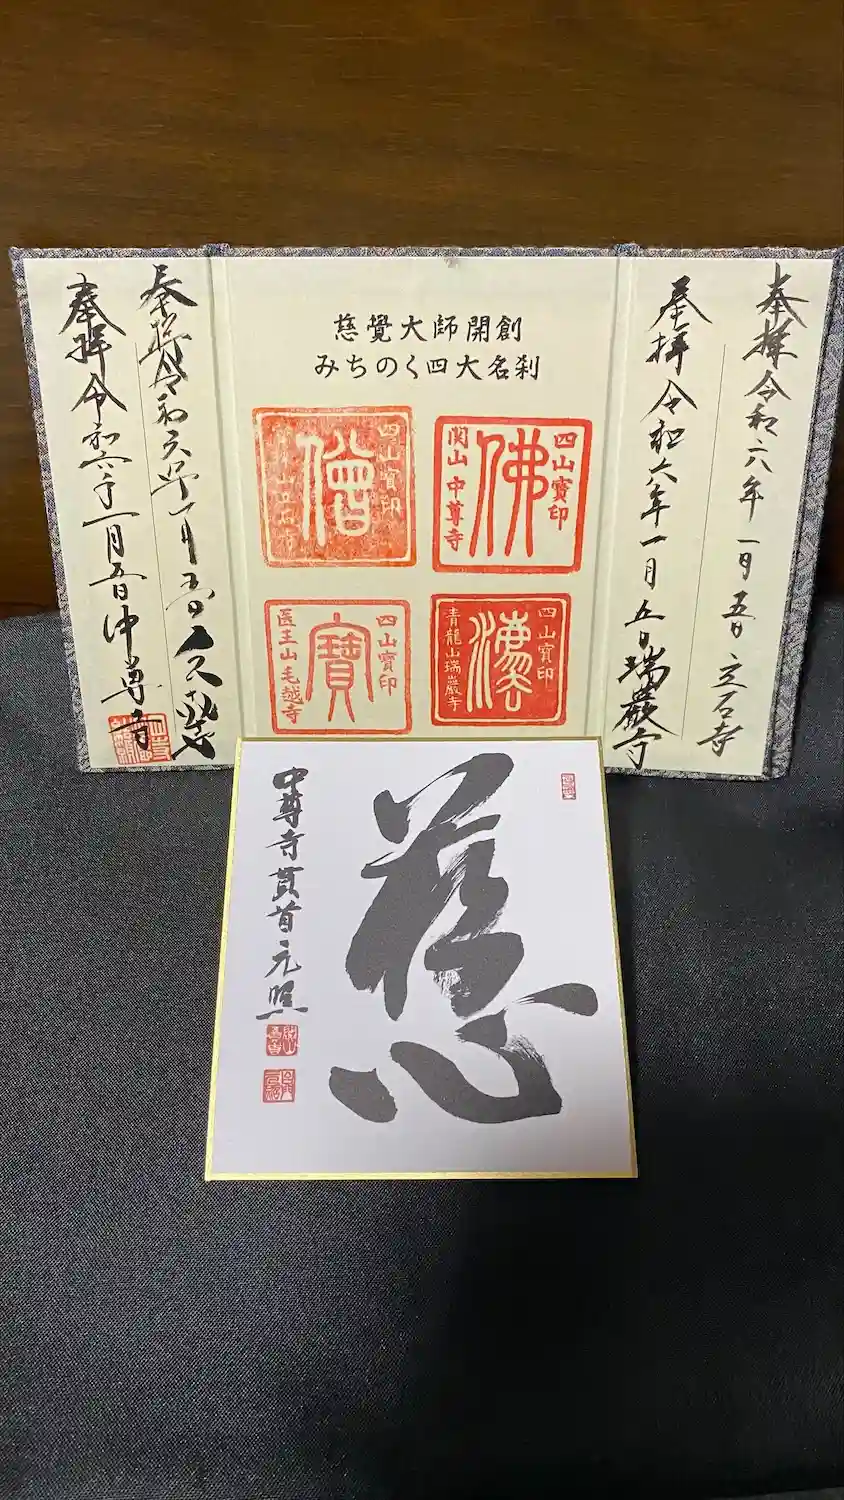 奉拝 令和六年一月五日 立石寺
奉拝 令和六年一月五日 瑞巌寺
慈覺大師開創
みちのく四大名刹
四山寳印
佛
関山 中尊寺
四山寳印
僧
四山寳印
青龍山瑞巌寺
四山寳印
寶
医王山毛越寺
奉拝 令和六年一月五日
奉拝 令和六年一月五日 中尊寺
慈
中尊寺貫首元照